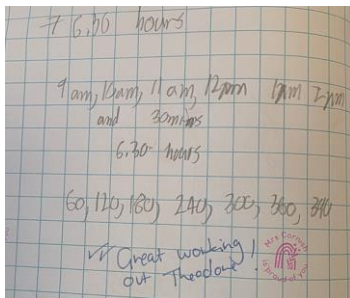 7 6.30 hours
9am, 10am, 11am, 12pm 1pm 2pm
and 30mins
6.30 hours
60, 120, 180, 240, 300, 360, 390
Great working
out Theodore!
Mrs Cormish
is proud of you